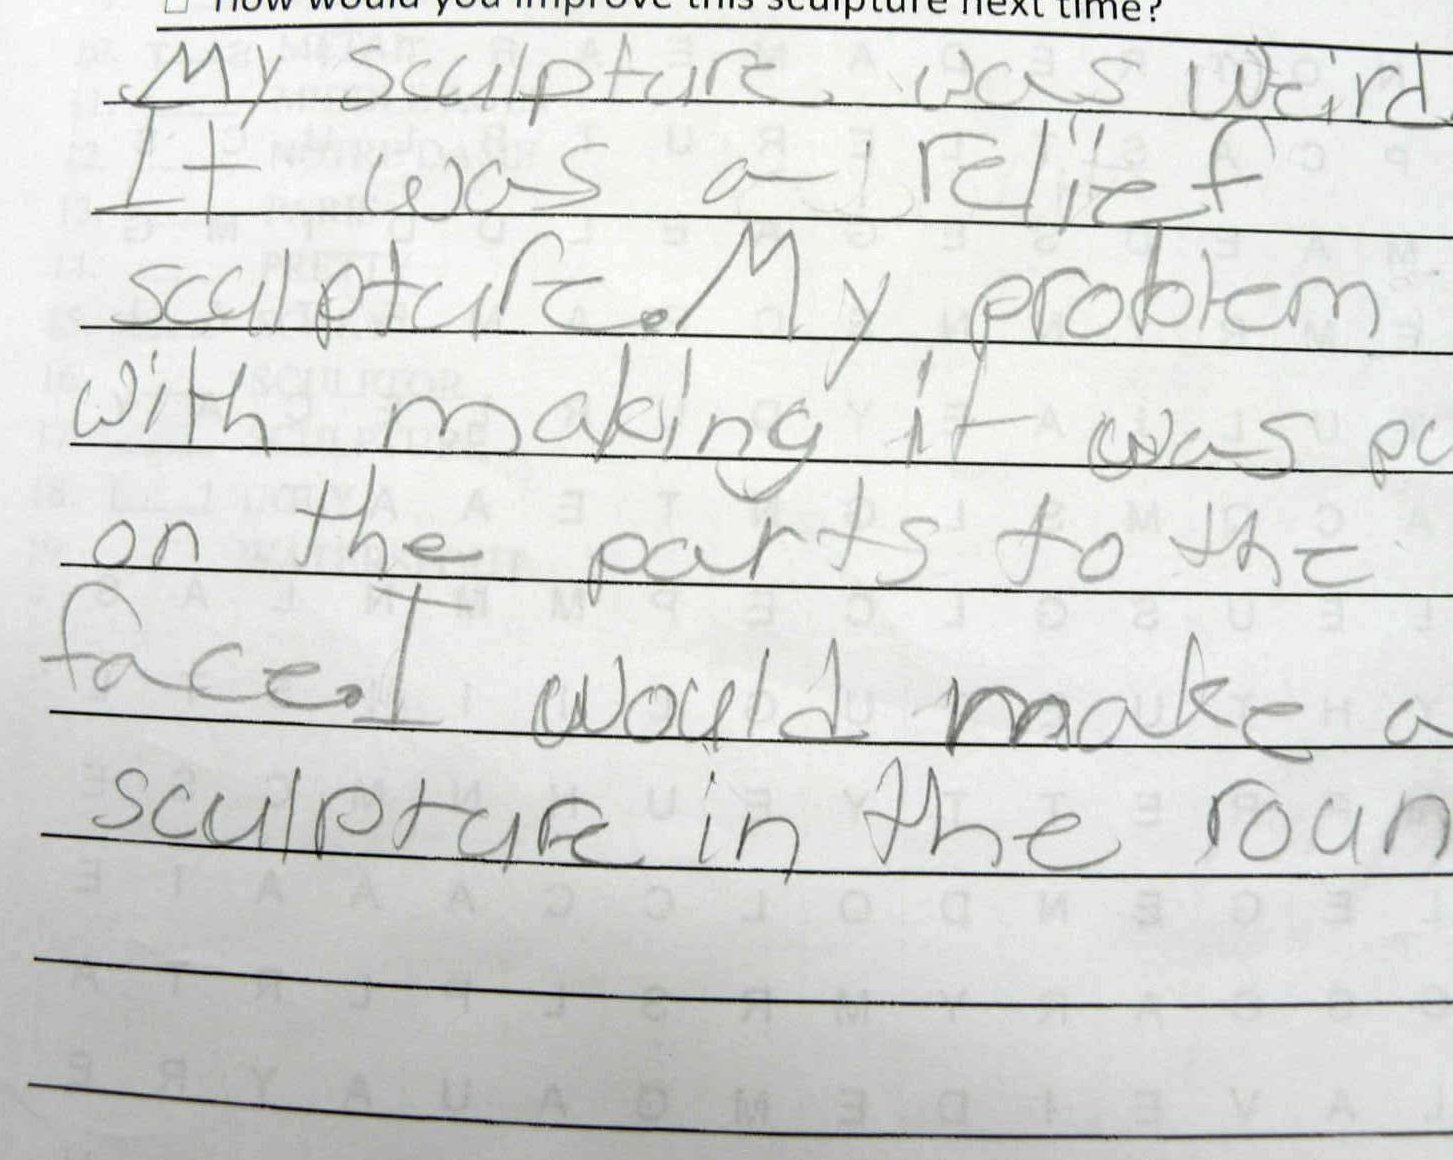 How would you improve this sculpture next time?
My sculpture was weird.
It was a relief
sculpture. My problem
with making it was
on the parts to the
face. I would make a
sculpture in the roun